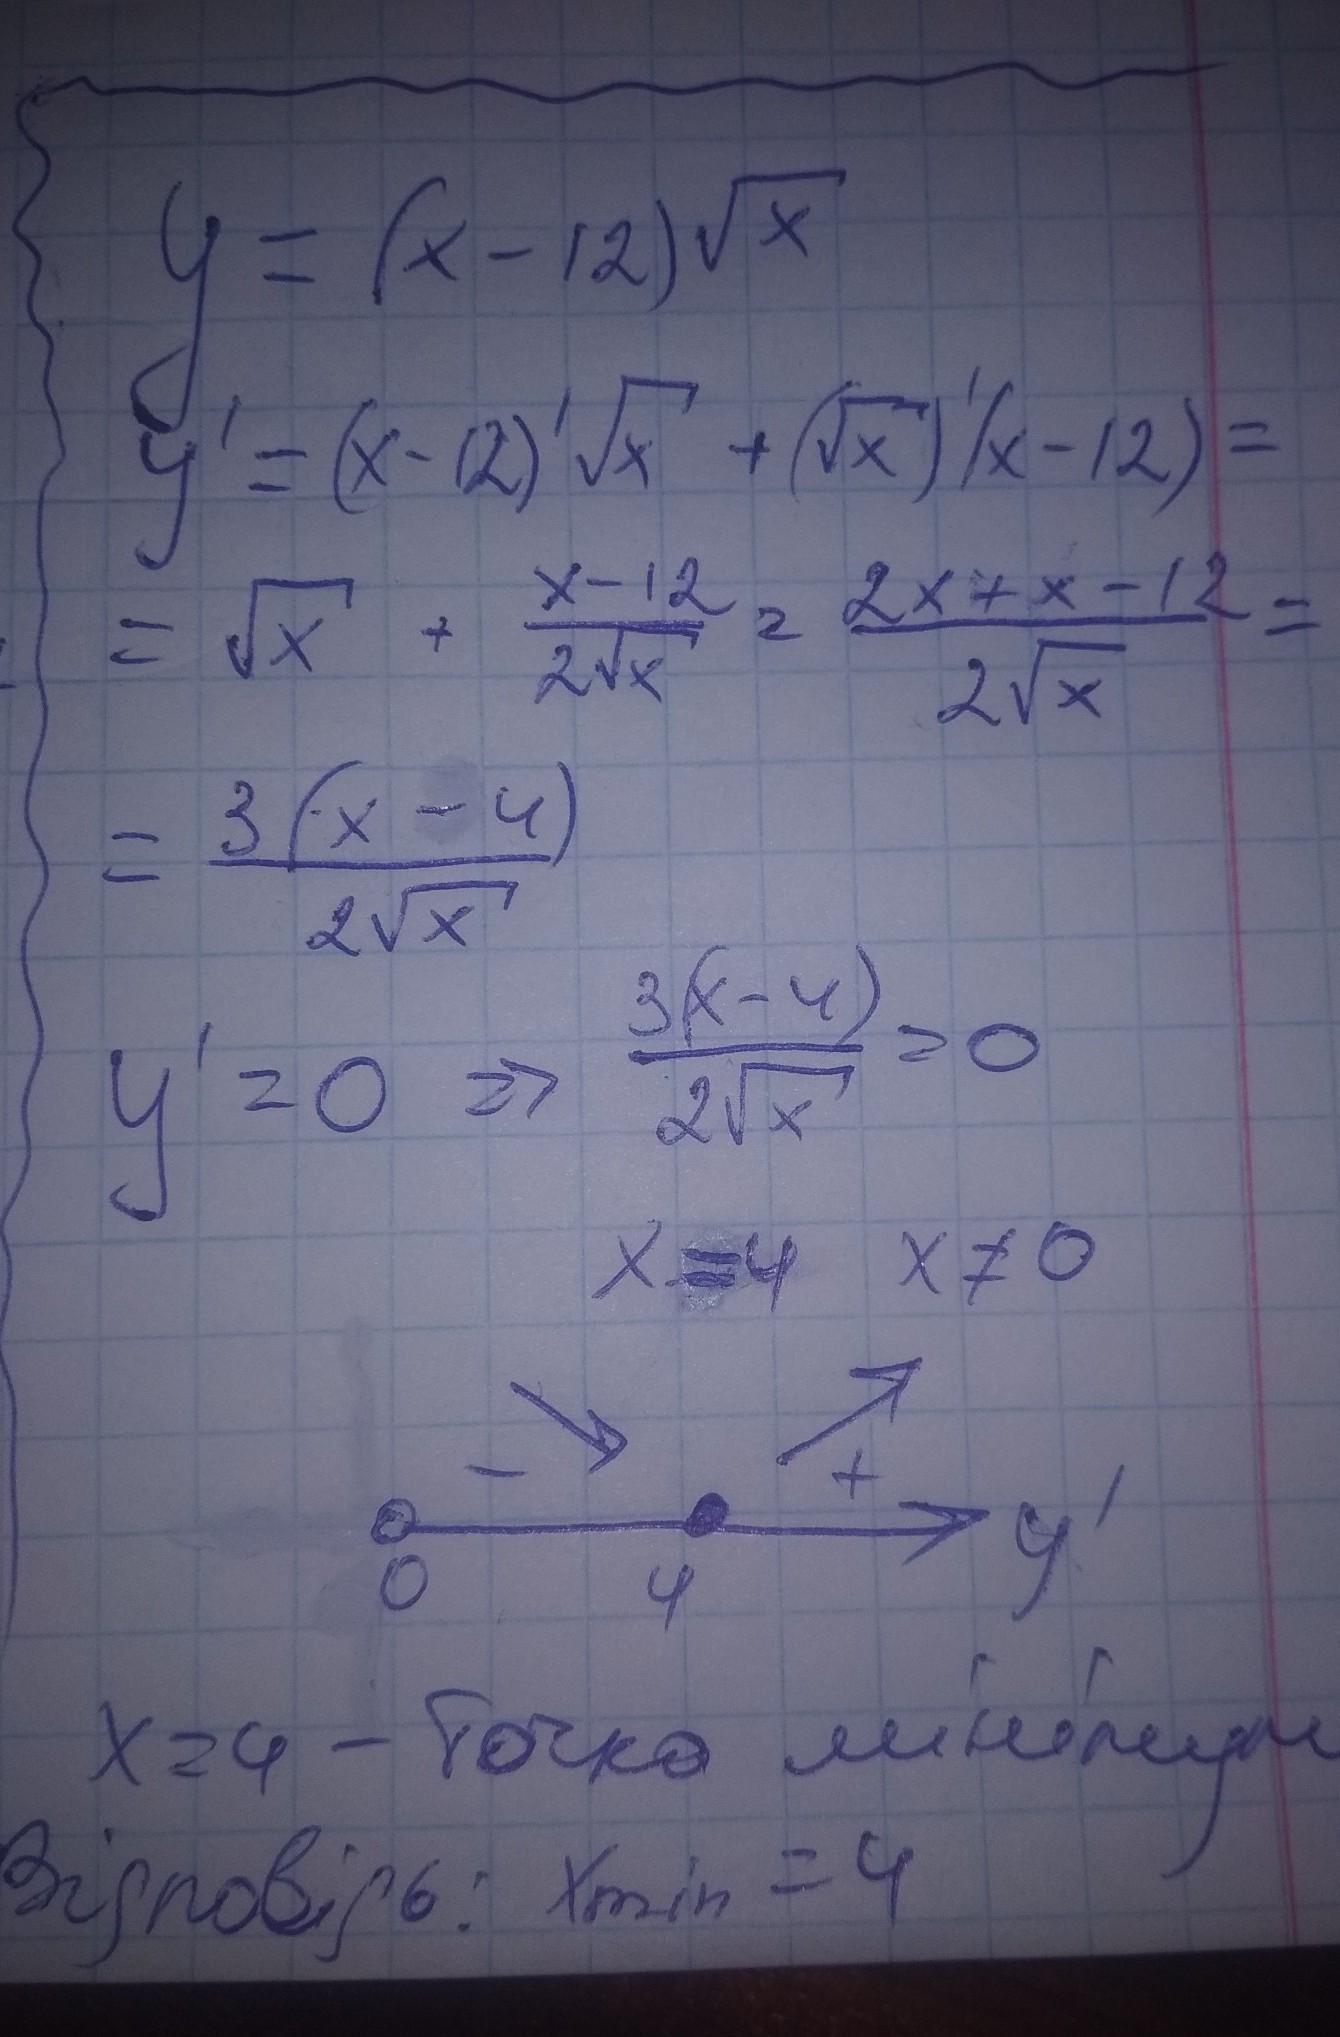 y = (x - 12)√x
y' = (x - 12)'√x + (√x)'(x - 12) =
= √x + (x - 12)/(2√x) = (2x + x - 12)/(2√x) =
= 3(x - 4)/(2√x)
y' = 0 => 3(x - 4)/(2√x) = 0
x = 4 x ≠ 0
- +
0 4 y'
x = 4 - точка мінімум
Відповідь: xmin = 4